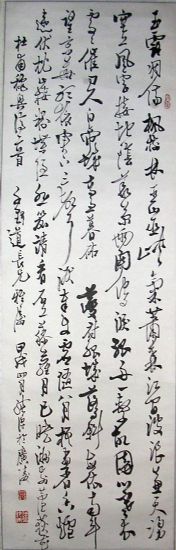 玉露凋傷楓樹林巫山巫峽氣蕭森江間波浪兼天湧
塞上風雲接地陰叢菊兩開他日淚孤舟一繫故園心寒衣
處處催刀尺白帝城高急暮砧 夔府孤城落日斜每依斗
望京華聽猿實下三聲淚奉使虛隨八月槎畫省香爐
違伏枕山樓粉堞隱悲笳請看石上藤蘿月已映洲前蘆荻花
杜甫秋興詩二首 道長兄雅 甲戌四月於廣